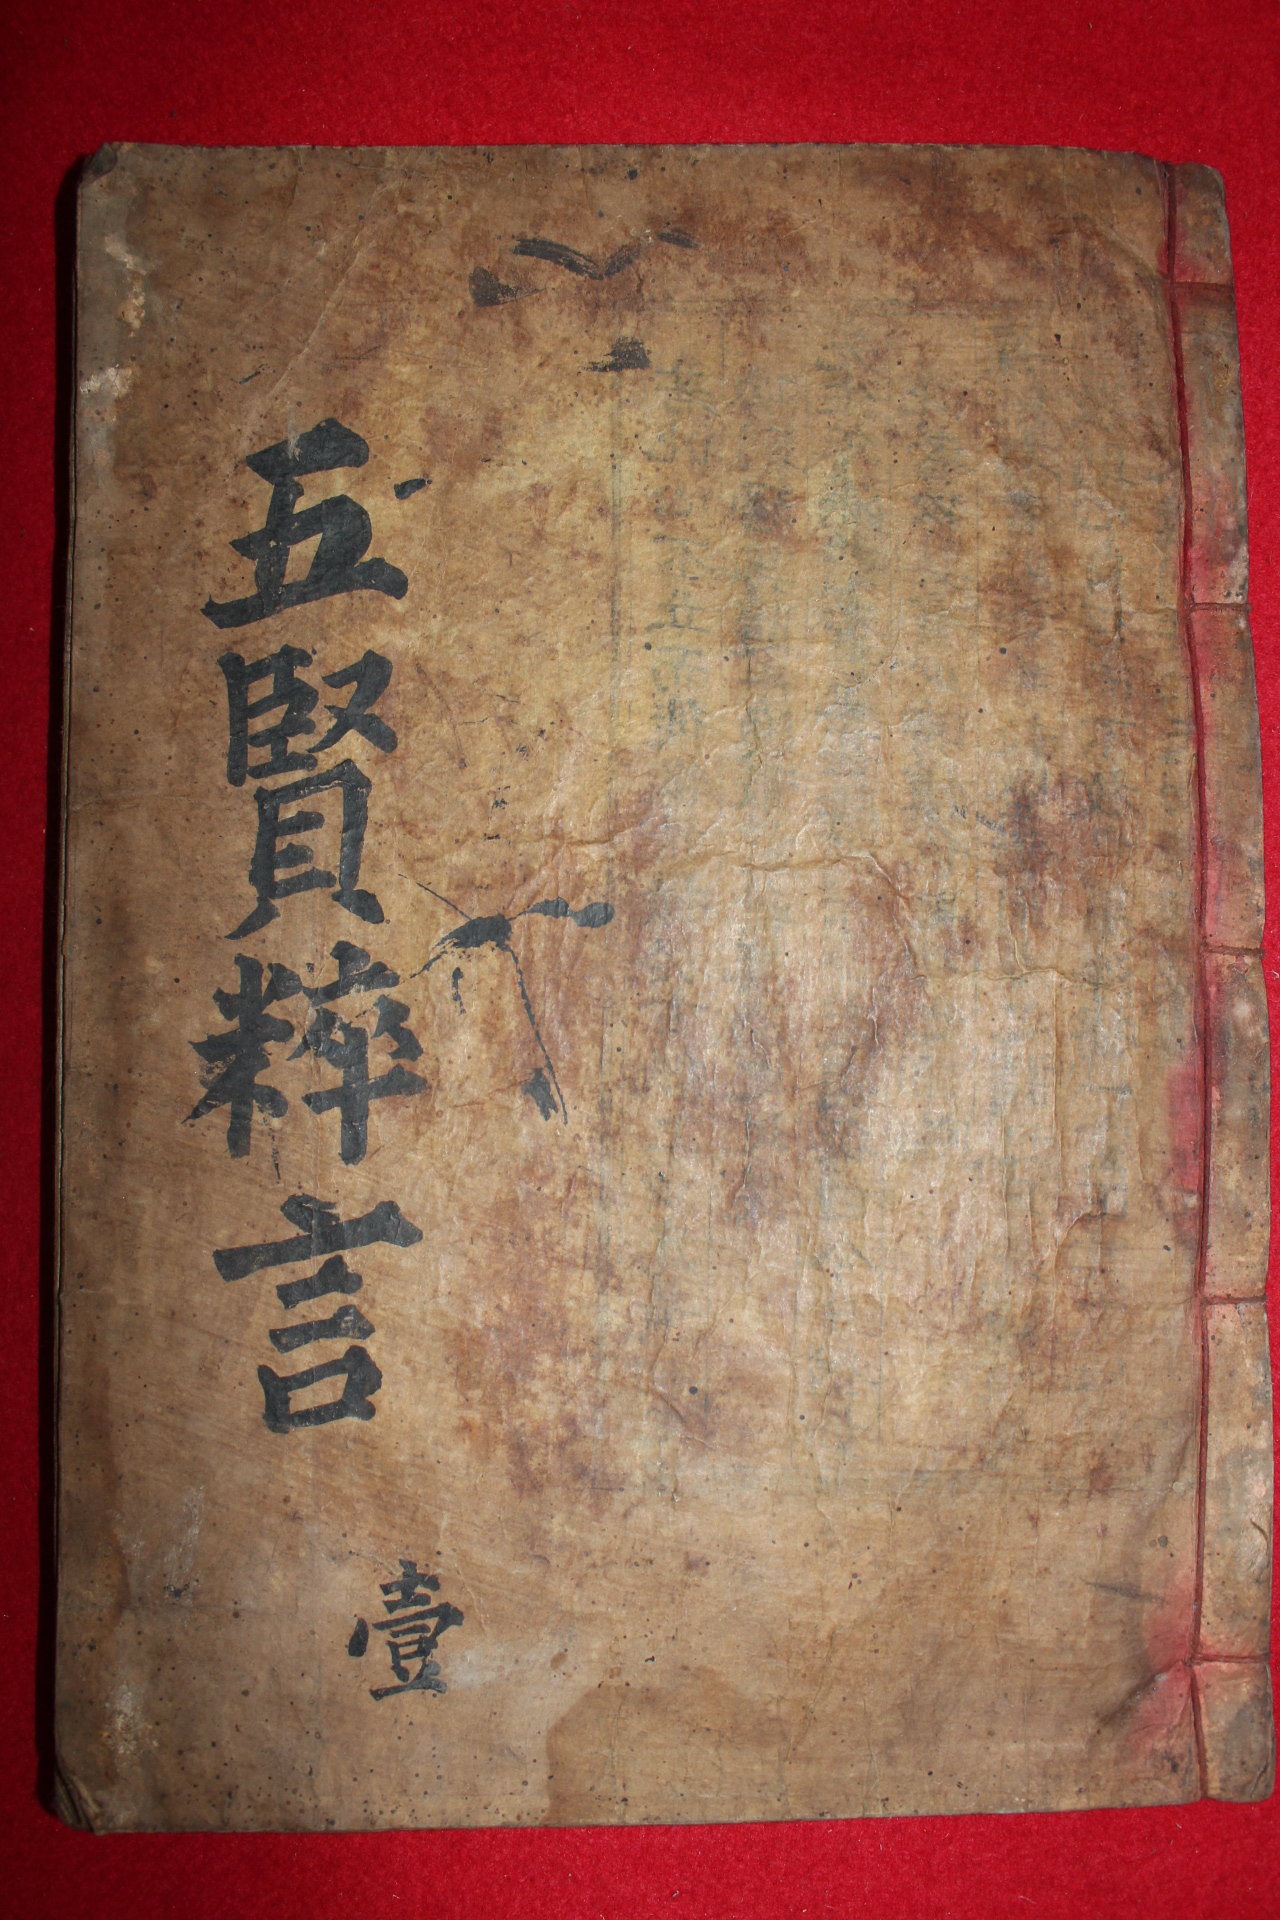 五賢粹言
壹